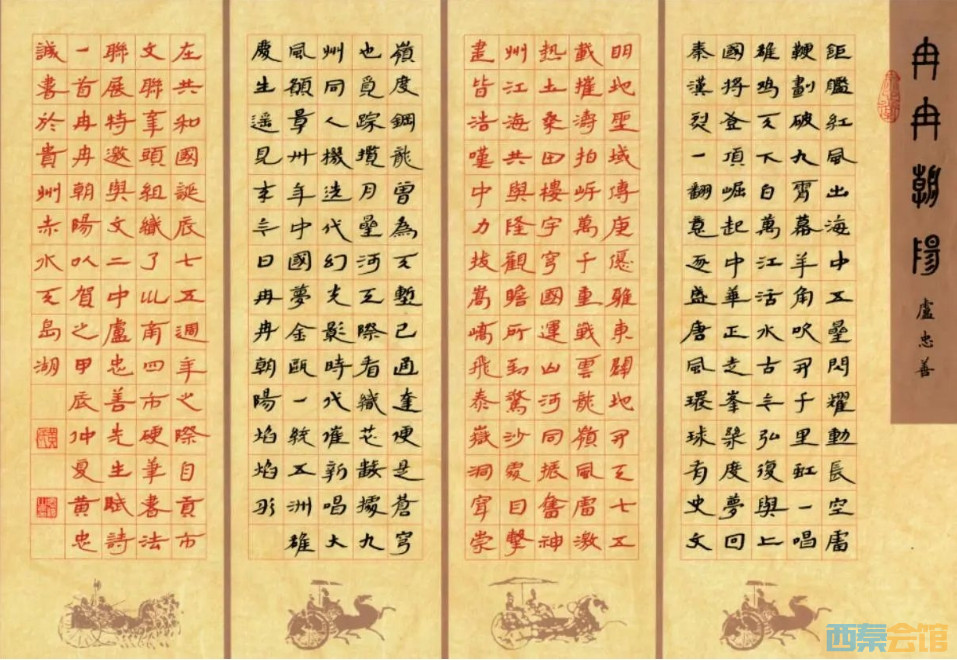 冉冉朝陽
盧忠善
鉅艦紅風出海中五壘閃耀動長空雷
鞭劃破九霄幕羊角吹開千里虹一唱
雄鸡天下白萬江活水古今弘復興上
國將登頂崛起中華正走峯槃度夢回
秦漢烈一翻意逐盛唐風環球有史文
明地聖域傳庚優雅東關地開天七五
載摧濤拍岍萬千重戰雲龍嶺風雷激
熱土桑田樓宇穹國運山河同振奮神
州江海共興隆觀瞻所到驚沙霞日擊
畫皆浩嘆中力拔嵩嶠飛泰嶽洞穿崇
嶺度鋼龍曾為天塹已通達便是蒼穹
也覓踪攬月壘河天際看織芯數據九
州同人擬造代幻光影時代催新唱大
風願尋卅年中國夢金甌一統五洲雄
慶生遥見今日冉冉朝陽焰焰彤
在共和國誕辰七五週年之際自貢市
文聯牽頭組織了川南四市硬筆書法
聯展特邀與文二中盧忠善先生賦詩
一首冉冉朝陽以賀之甲辰仲夏黄忠
誠書於貴州赤水天島湖
西秦会馆